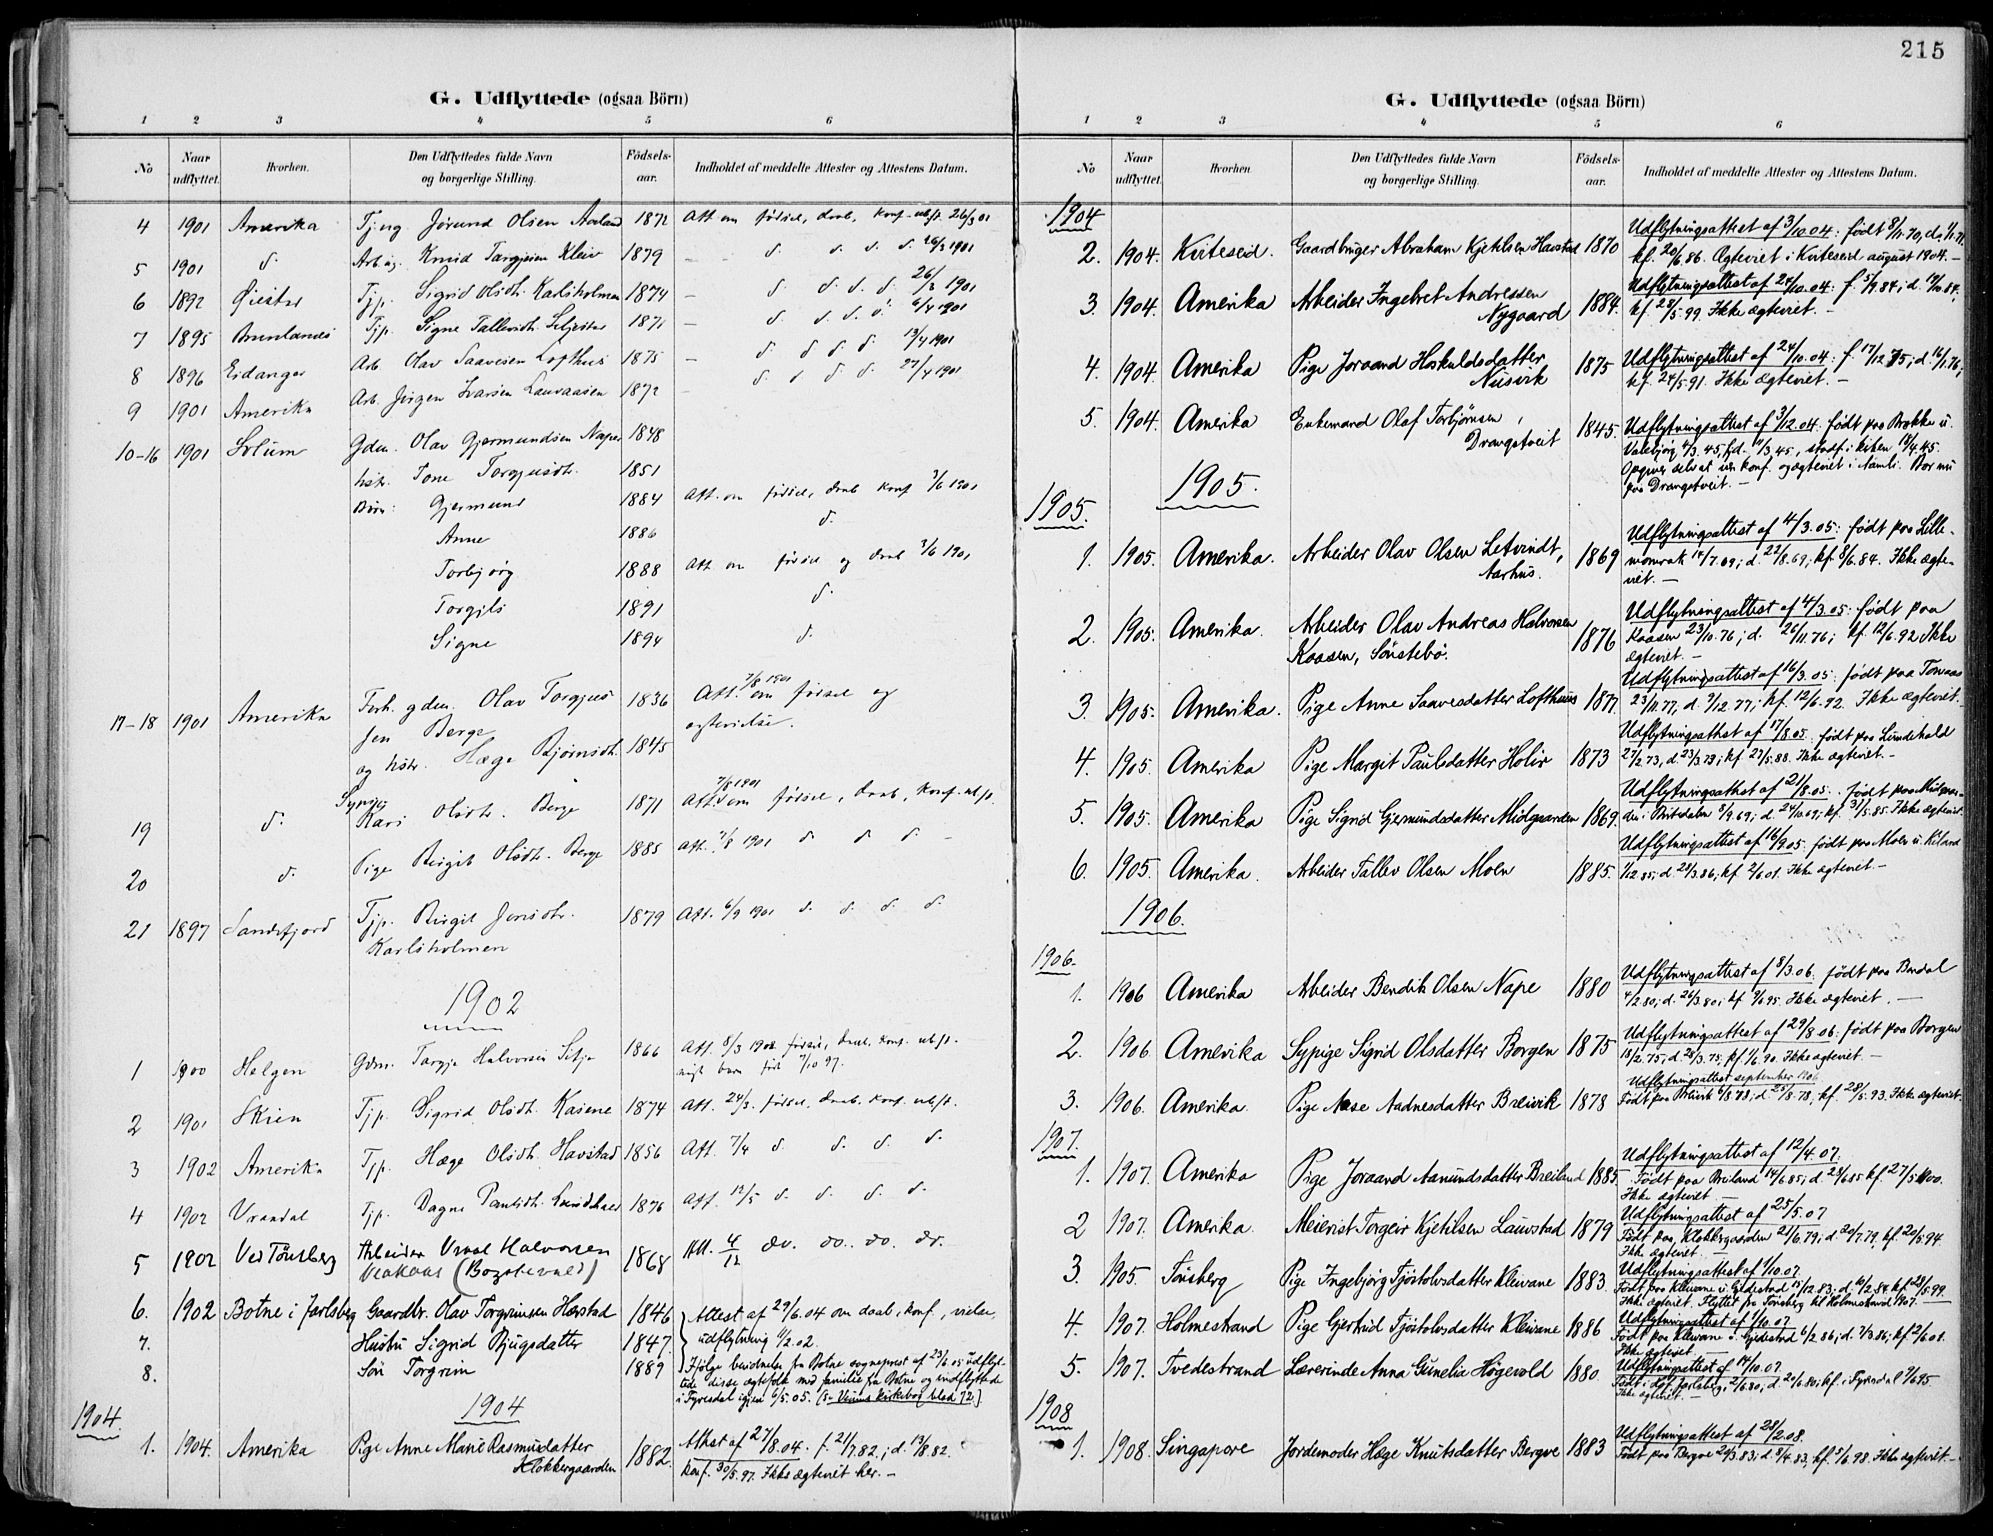 215
G. Udflyttede (ogsaa Börn)
1 2 3 4 5 6
No
Naar udflyttet.
Hvorhen.
Den Udflyttedes fulde Navn og borgerlige Stilling.
Födsels-aar.
Indholdet af meddelte Attester og Attestens Datum.
4 1901 Amerika Tjeng. Jörund Olsen 1872 Att. om födsel, daab, konf. 26/3 01
5 1901 d. Knud Targjeien Kleiv 1879 d. d. d. d. 26/3 1901
6 1892 Öiestad Tjp. Sigrid Olsdtr. Karlsholmen 1874 d. d. d. d. 26/3 1901
7 1895 Tjp. Signe 1871 d. d. d. d. 6/4 1901
8 1896 Eidanger Arb. Olav Saavesen Lofthus 1875 d. d. d. d. 13/4 1901
9 1901 Amerika Arb. Jörgen Ivarsen Lauvaasen 1872 d. d. d. d. 27/4 1901
10-16 1901 Solum Gdm. Olav Gjermundsen Napes 1848
hstr. Tone Torgjusdtr. 1851
Börn: Gjermund 1884 Att. om födsel, daab konf 3/6 1901
Anne 1886 d.
Torbjörg 1888 Att. om födsel og daab 3/6 1901
Torgils 1891 d.
Signe 1894 d.
17-18 1901 Amerika Forh. gdm. Olav Torgjus 1836 Att. 7/8 1901 om födsel og
sen Berge
og hstr. Hæge Björnsdtr. 1845
19 d. Sypige Kari Olsdtr. Berge 1871 Att. 7/8 1901 om födsel, daab, konf.
20 d. Pige Birgit Olsdtr. Berge 1885 Att. 7/8 1901 d d d
21 1897 Sandefjord Tjp. Birgit Jensdtr. 1879 Att. 6/9 1901 d. d. d. d.
Karlsholmen
1902
1 1900 Helgen Gdm. Targje Halvorsen 1866 Att. 8/3 1902 födsel, daab, konf.
2 1901 Skien Tjp. Sigrid Olsdtr. Kasene 1874 Att. 24/3. födsel, daab, konf.
3 1902 Amerika Tjp. Hæge Olsdtr. Havstad 1856 Att. 7/4 d. d. d. d.
4 1902 Vraadal Tjp. Dagne Paulsdtr. 1876 Att. 12/5 d. d. d. d.
5 1902 Ved Tönsberg Arbeider Halvorsen 1868 Att. 4/12 do. do. do. do.
6. 1902 Botne i Jarlsberg Gaardbr. Olav Torgrimsen Havstad 1846 Attest af 29/6.04 om daab, konf., vielse,
7. Hustru Sigrid Bjugsdatter 1847 udflytning
8. Sön Torgrim 1889 Ifölge fra Botne sogneprest af 23/6.05 udflyt-
tede disse ægtefolk med familie fra Botne og indflyttede
i Fyresdal igjen 6/5.05.
1904
1904
1. 1904. Amerika Pige Anne Marie Rasmusdatter 1882 Attest af 27/8.04. f. 21/7.82.; d. 13/8.82.
Klokkergaarden Konf. 30/5.97. Ikke ægteviet her. –
G. Udflyttede (ogsaa Börn)
1 2 3 4 5 6
No
Naar udflyttet.
Hvorhen
Den Udflyttedes fulde Navn og borgerlige Stilling.
Födsels-aar.
Indholdet af meddelte Attester og Attestens Datum.
1904
Udflytningsattest af 3/10.04: født 8/11.70, d. 1/1.71.
2. 1904. Kviteseid. Gaardbruger Abraham Kjetilsen Havstad 1870 kf. 20/6.86. Ægteviet i Kviteseid august 1904. –
Udflytningsattest af 24/10.04. f. 5/9.84; d. 19/10.84;
3. 1904. Amerika Arbeider Ingebret Andressen 1884. kf. 28/5.99. Ikke ægteviet. –
Nygaard
4. 1904. Amerika Pige Joraand Hoskuldsdatter 1875 Udflytningsattest af 24/10.04: f. 17/12.75; d. 16/1.76;
Nusvik kf. 24/5.91. Ikke ægteviet. –
5. 1904. Amerika Enkemand Olaf Torbjörnsen, 1845. Udflytningsattest af 3/12.04. født paa Brokke u.
Drangstveit Valebjörg 4/3.45, hd. 11/3.45, stadf. i kirken 13/4.45.
Opgiver selv at være konf. og ægteviet i Aamli. Bor nu
paa Drangstveit. –
1905.
1905.
Udflytningsattest af 4/3.05: født paa Lille-
1. 1905. Amerika. Arbeider Olav Olsen Letvindt, 1869 momrak 14/7.69; d. 22/8.69; kf. 8/6.84. Ikke ægte-
Aarhus. viet. –
Udflytningsattest af 4/3.05: født paa
2. 1905. Amerika. Arbeider Olav Andreas Halvorsen 1876 Kaasen 23/10.76; d. 26/11.76; kf. 12/6.92 Ikke
Kaasen, Sönstebö. ægteviet. –
Udflytningsattest af 16/3.05: født paa
3. 1905. Amerika. Pige Anne Saavesdatter Lofthuus 1877 23/11.77, d. 9/12.77; kf. 12/6.92. Ikke ægteviet.
Udflytningsattest af 17/8.05. født paa
4. 1905. Amerika Pige Margit Paulsdatter Holiv 1873 27/2.73, d. 23/3.73; kf. 27/5.88. Ikke ægteviet. –
Udflytningsattest af 21/8.05. født paa
5. 1905. Amerika Pige Sigrid Gjermundsdatter Midgaarden 1869. 8/9.69; d. 24/10.69; kf. 31/5.85. Ikke ægteviet.
Udflytningsattest af 16/9.05. født paa Moen u. Kiland
6. 1905. Amerika. Arbeider Tallev Olsen Moen 1885. d. 28/3.86; kf. 2/6.01. Ikke ægteviet –
1906.
1906.
Udflytningsattest af 8/3.06: født paa Bondal
1. 1906 Amerika Arbeider Bendik Olsen Nape 1880 4/2.80; d. 26/3.80; kf. 9/6.95. Ikke ægteviet. –
Udflytningsattest af 29/8.06: født paa Borgen
2. 1906 Amerika Sypige Sigrid Olsdatter Borgen 1875 18/2.75; d. 28/3.75; kf. 1/6.90. Ikke ægteviet. –
Udflytningsattest september 1906
3. 1906. Amerika. Pige Aase Aadnesdatter Breivik 1878 Født paa Breivik 6/8.78; d. 25/8.78; kf. 28/5.93. Ikke ægteviet.
1907.
Udflytningsattest af 12/4.07.
1. 1907. Amerika Pige Joraand Aanundsdatter Breiland 1885. Født paa Breiland 14/6.85; d. 28/6.85 kf. 27/5.1900.
Ikke ægteviet –
Udflytningsattest af 25/5.07
2 1907. Amerika. Meierist Torgeir Kjetilsen Lauvstad 1879 Født paa Klokkergaarden 21/6.79; d. 20/7.79, kf. 20/5.94.
Ikke ægteviet. –
Udflytningsattest af 1/10.07.
3. 1905. Tönsberg Pige Ingebjörg Tjöstolvsdatter Kleivane 1883. Født paa Kleivane u. Gjedestad 15/12.83; d. 10/2.84. kf. 28/5.99.
Ikke ægteviet. Flyttet fra Tönsberg til Holmestrand 1907. –
Udflytningsattest af 1/10.07.
4. 1907. Holmestrand Pige Gjertrud Tjöstolvsdatter Kleivane 1886 Født paa Kleivane u. Gjedestad 6/2.86; d. 7/3.86; kf. 2/6.01.
Ikke ægteviet. –
Udflytningsattest af 14/10.07.
5. 1907. Tvedestrand Lærerinde Anna Gunelia Högevold 1880 Født i Hof, Jarlsberg, 2/6.80; d. 20/6.80; kf. i Fyresdal 9/6.95.
Ikke ægteviet. –
1908
Udflytningsattest af 28/2.08.
1. 1908. Singapore Jordemoder Hæge Knutsdatter Bergve 1883 Født paa Bergve 20/3.83; d. 8/4.83, kf. 5/6.98. Ikke ægteviet. –